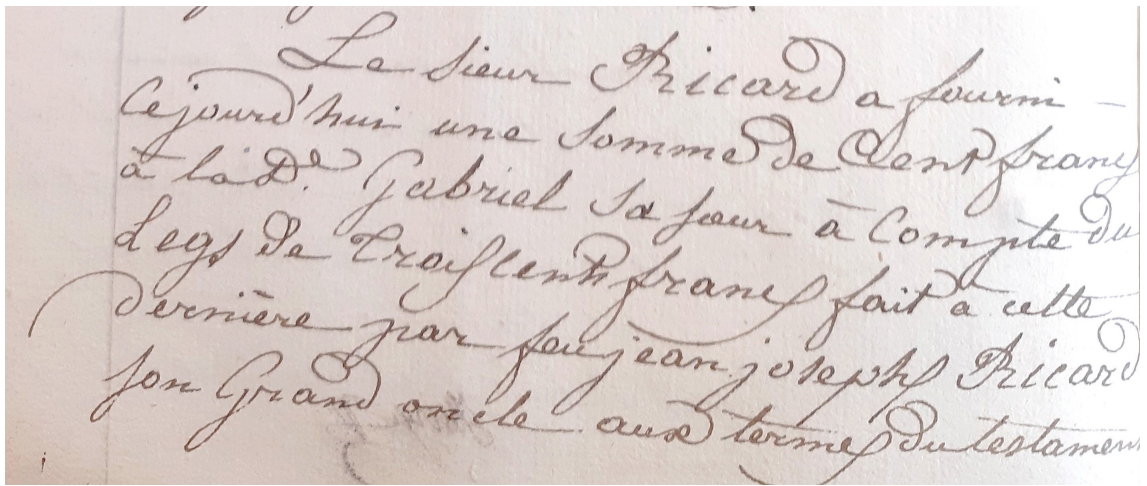 Le sieur Ricard a fourni –
Cejourd'hui une somme de Cent francs
à lad.e Gabriel sa sœur à Compte du
Legs de Trois cents francs fait à cette
dernière par feu jean joseph Ricard
son Grand oncle aux termes du testament